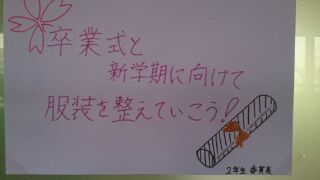 卒業式と
新学期に向けて
服装を整えていこう!
2年生 委員長